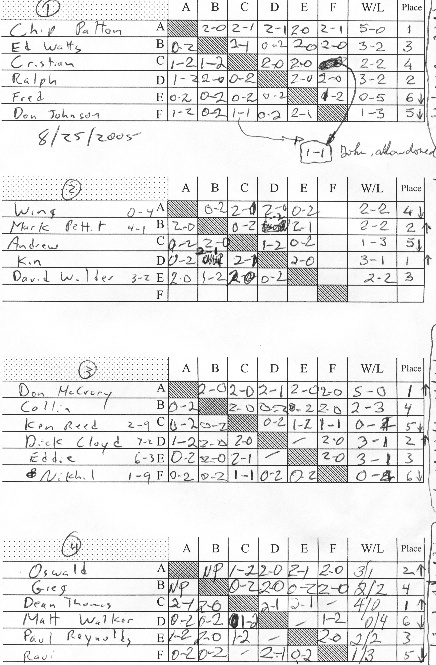 1 A B C D E F W/L Place
Chip Patton A 2-0 2-1 2-1 2-0 2-1 5-0 1
Ed Watts B 0-2 2-1 0-2 2-0 2-0 3-2 3
Cristian C 1-2 1-2 2-0 2-0 2-2 4
Ralph D 1-2 2-0 0-2 2-0 2-0 3-2 2
Fred E 0-2 0-2 0-2 0-2 1-2 0-5 6↓
Don Johnson F 1-2 0-2 1-1 0-2 2-1 1-3 5↓
8/25/2005 1-1 abandoned
2 A B C D E F W/L Place
Wing 0-4 A 0-2 2-0 0-2 2-2 4↓
Mark Pettit 4-1 B 2-0 0-2 2-1 2-2 2↑
Andrew C 0-2 2-0 1-2 0-2 1-3 5↓
Kin D 0-2 2-1 2-1 2-0 3-1 1↑
David Wilder 3-2 E 2-0 1-2 2-0 0-2 2-2 3
F
3 A B C D E F W/L Place
Don McCrory A 2-0 2-0 2-1 2-0 2-0 5-0 1↑
Collin B 0-2 2-0 0-2 2-0 2-3 4
Ken Reed 2-9 C 0-2 0-2 0-2 1-2 1-1 5↓
Dick Cloyd 7-2 D 1-2 2-0 2-0 - 2-0 3-1 2↑
Eddie 6-3 E 0-2 2-0 2-1 - 2-0 3-1 3
Nikhil 1-9 F 0-2 0-2 1-1 0-2 0-2 0-4 6↓
4 A B C D E F W/L Place
Oswald A NP 1-2 2-0 2-1 2-0 3/1 2↑
Greg B NP 0-2 2-0 0-2 2-0 2/2 4
Dean Thomas C 2-1 2-0 2-1 2-1 - 4/0 1↑
Matt Walker D 0-2 0-2 1-2 - 1-2 0/4 6↓
Paul Reynolds E 1-2 2-0 1-2 - 2-0 2/2 3
Ravi F 0-2 0-2 - 2-1 0-2 1/3 5↓